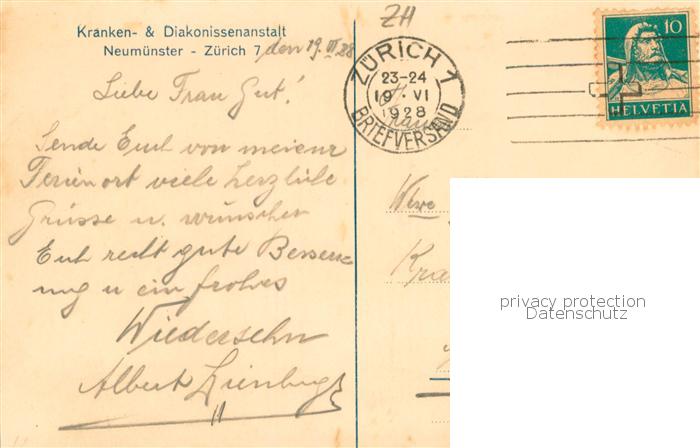 Kranken- & Diakonissenanstalt
Neumünster - Zürich 7, den 19. VI 28
Liebe Frau Gut!
Sende Euch von meinem
Ferienort viele herzliche
Grüsse u. wünschen
Euch recht gute Besser-
ung u ein frohes
Wiedersehn
Albert
ZH
ZÜRICH 1
23-24
19. VI
1928
BRIEFVERSAND
10
HELVETIA
Frau
Kra
privacy protection
Datenschutz